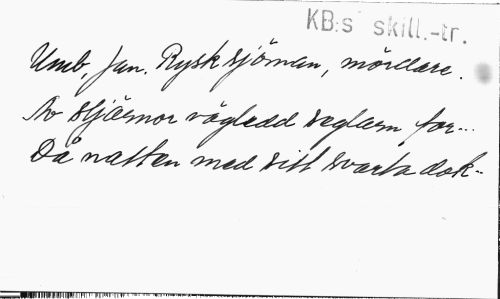 KB:s skill.-tr.
Umb, Jan. Rysk sjöman, mördare.
Av stjärnor vägledd seglarn far...
Då natten med sitt svarta dok-